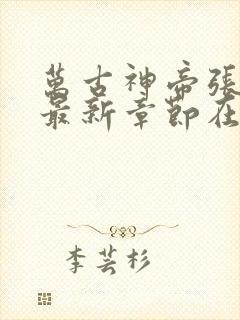 萬古神帝張
最新章節在
李芸杉